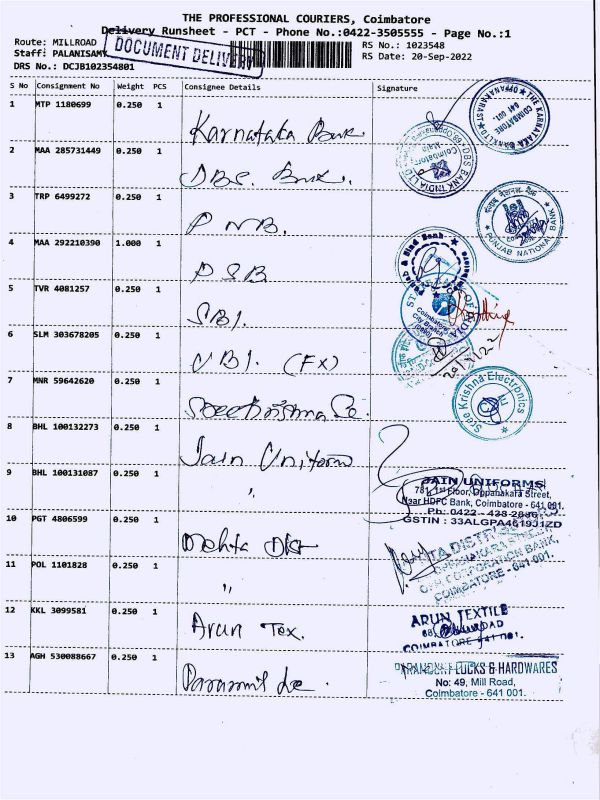 THE PROFESSIONAL COURIERS, Coimbatore
Delivery Runsheet - PCT - Phone No.:0422-3505555 - Page No.:1
Route: MILLROAD
DOCUMENT DELIVERY
RS No.: 1023548
Staff: PALANISAMY
RS Date: 20-Sep-2022
DRS No.: DCJB102354801
S No Consignment No Weight PCS Consignee Details Signature
1 MTP 1180699 0.250 1 Karnataka Bank
THE KARNATAKA BANK LTD OPPANAKARA ST COIMBATORE 641 001
2 MAA 285731449 0.250 1 DBS. Bank.
DBS BANK INDIA LTD Coimbatore Main
3 TRP 6499272 0.250 1 PNB.
PUNJAB NATIONAL BANK
4 MAA 292210390 1.000 1 PSB
Punjab & Sind Bank Coimbatore
5 TVR 4081257 0.250 1 SBI.
OF INDIA Coimbatore City Branch
6 SLM 303678205 0.250 1 UBI. (FX)
7 MNR 59642620 0.250 1
Sree Krishna Electronics
8 BHL 100132273 0.250 1 Jain Uniform
9 BHL 100131087 0.250 1 "
JAIN UNIFORMS
781, 1st Floor, Oppanakara Street,
Near HDFC Bank, Coimbatore - 641 001.
Ph: 0422 - 438
GSTIN : 33ALGPA4619J1ZD
10 PGT 4806599 0.250 1 Mehta Dist
OPPANAKARA STREET,
CORPORATION BANK,
COIMBATORE - 641 001.
11 POL 1101828 0.250 1 "
12 KKL 3099581 0.250 1 Arun Tex.
ARUN TEXTILE
COIMBATORE 641 001.
13 AGH 530088667 0.250 1
LOCKS & HARDWARES
No: 49, Mill Road,
Coimbatore - 641 001.